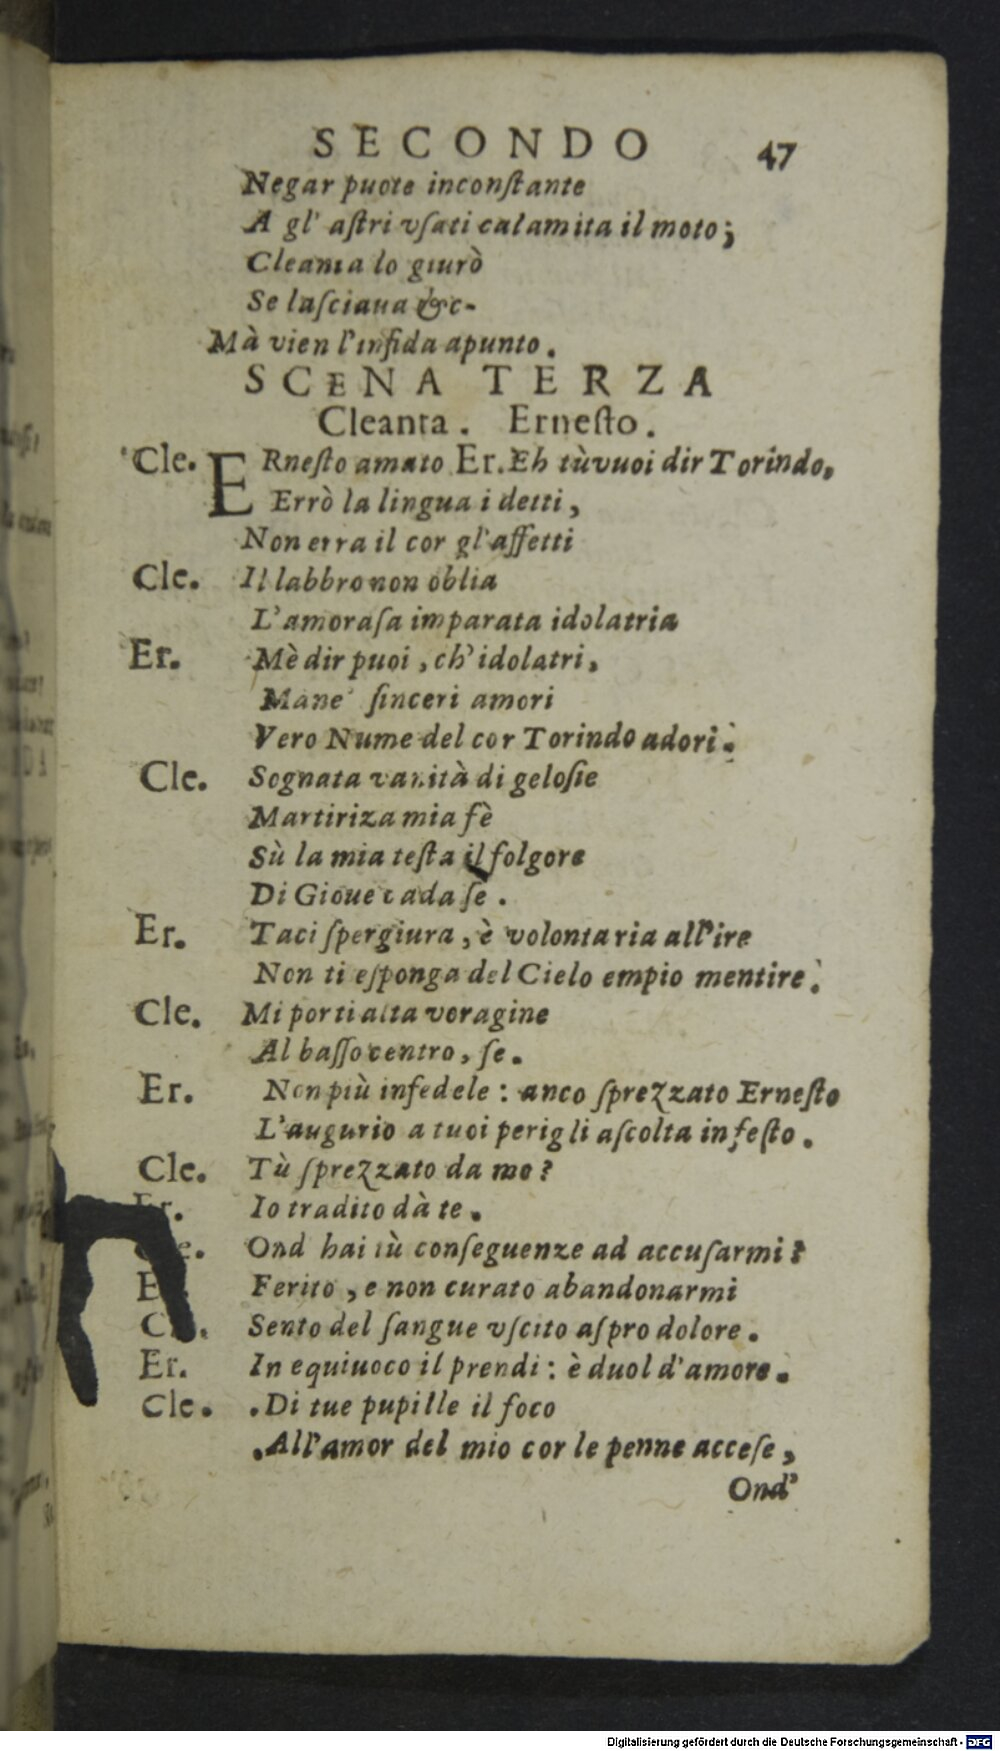 SECONDO 47
Negar puote inconſtante
A gl' aſtri vſati calamita il moto;
Cleanta lo giurò
Se laſciaua &c-
Mà vien l'infida apunto.
SCENA TERZA
Cleanta. Erneſto.
Cle. ERneſto amato Er. Eh tù vuoi dir Torindo.
Errò la lingua i detti,
Non erra il cor gl'affetti
Cle. Il labbro non oblia
L'amoraſa imparata idolatria
Er. Mè dir puoi, ch' idolatri,
Mane' ſinceri amori
Vero Nume del cor Torindo adori.
Cle. Sognata vanità di geloſie
Martiriza mia fè
Sù la mia teſta il folgore
Di Gioue cada ſe.
Er. Taci ſpergiura, è volontaria all'ire
Non ti eſponga del Cielo empio mentire.
Cle. Mi porti alta voragine
Al baſſo centro, ſe.
Er. Non più infedele: anco ſprezzato Erneſto
L'augurio a tuoi perigli aſcolta infeſto.
Cle. Tù ſprezzato da me?
Er. Io tradito dà te.
Cle. Ond hai tù conſeguenze ad accuſarmi?
Er. Ferito, e non curato abandonarmi
Cle. Sento del ſangue vſcito aſpro dolore.
Er. In equiuoco il prendi: è duol d'amore.
Cle. .Di tue pupille il foco
.All'amor del mio cor le penne acceſe,
Ond'
Digitalisierung gefördert durch die Deutsche Forschungsgemeinschaft - DFG